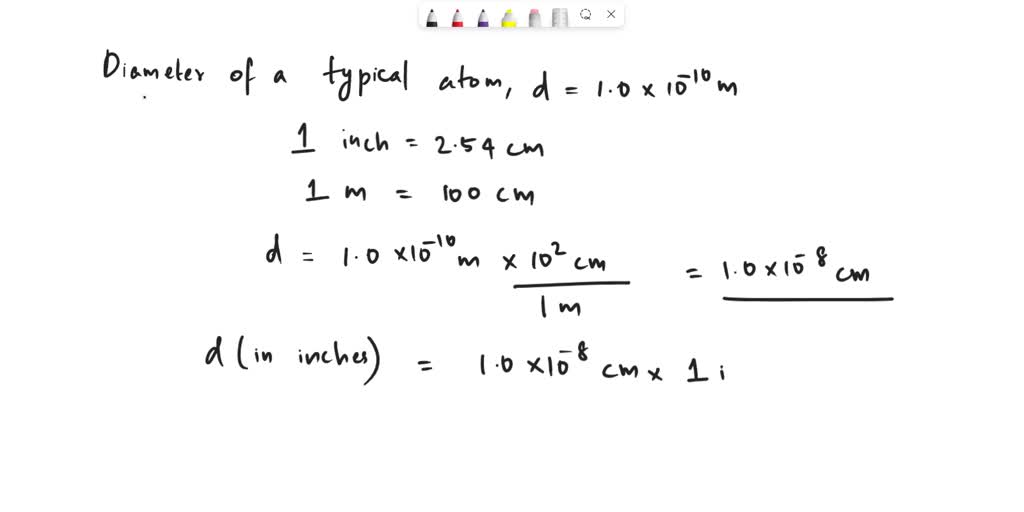 Diameter of a typical atom, d = 1.0 × 10⁻¹⁰ m
1 inch = 2.54 cm
1 m = 100 cm
d = 1.0 × 10⁻¹⁰ m × 10² cm / 1 m = 1.0 × 10⁻⁸ cm
d (in inches) = 1.0 × 10⁻⁸ cm × 1 i